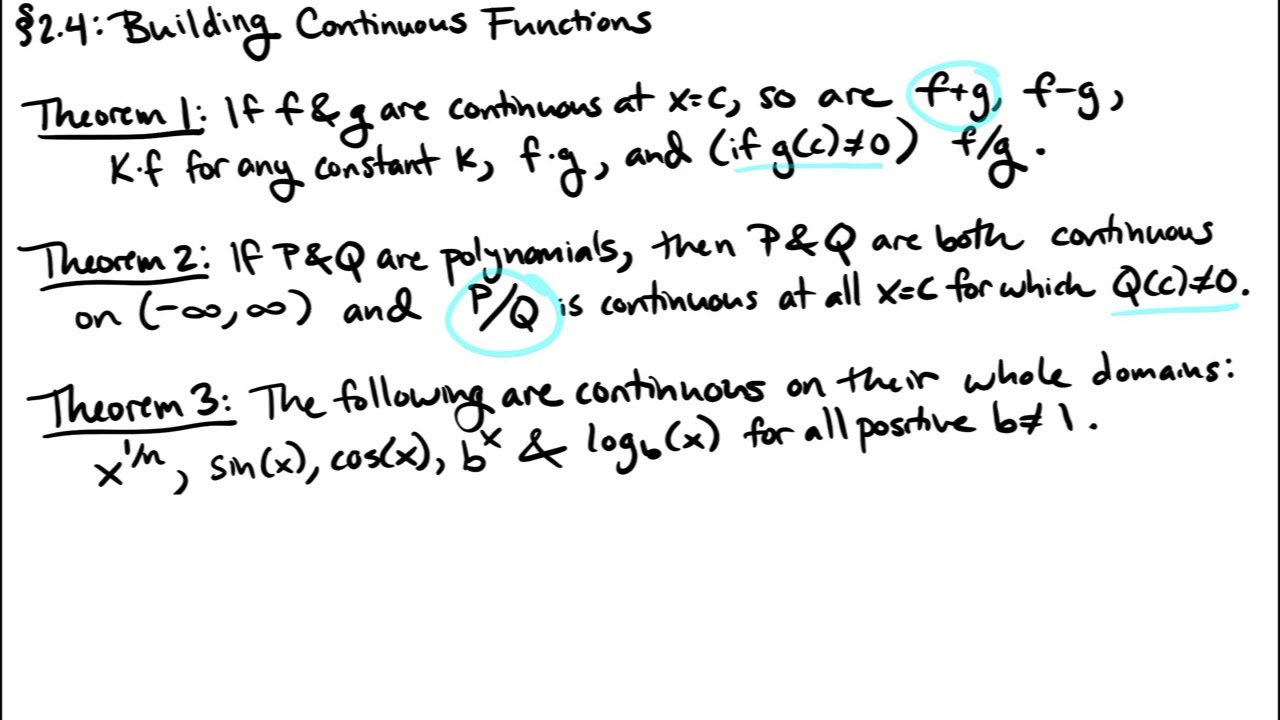 §2.4: Building Continuous Functions
Theorem 1: If f & g are continuous at x=c, so are f+g, f-g,
K·f for any constant K, f·g, and (if g(c)≠0) f/g.
Theorem 2: If P & Q are polynomials, then P & Q are both continuous
on (-∞,∞) and P/Q is continuous at all x=c for which Q(c)≠0.
Theorem 3: The following are continuous on their whole domains:
x^(1/n), sin(x), cos(x), b^x & log_b(x) for all positive b≠1.